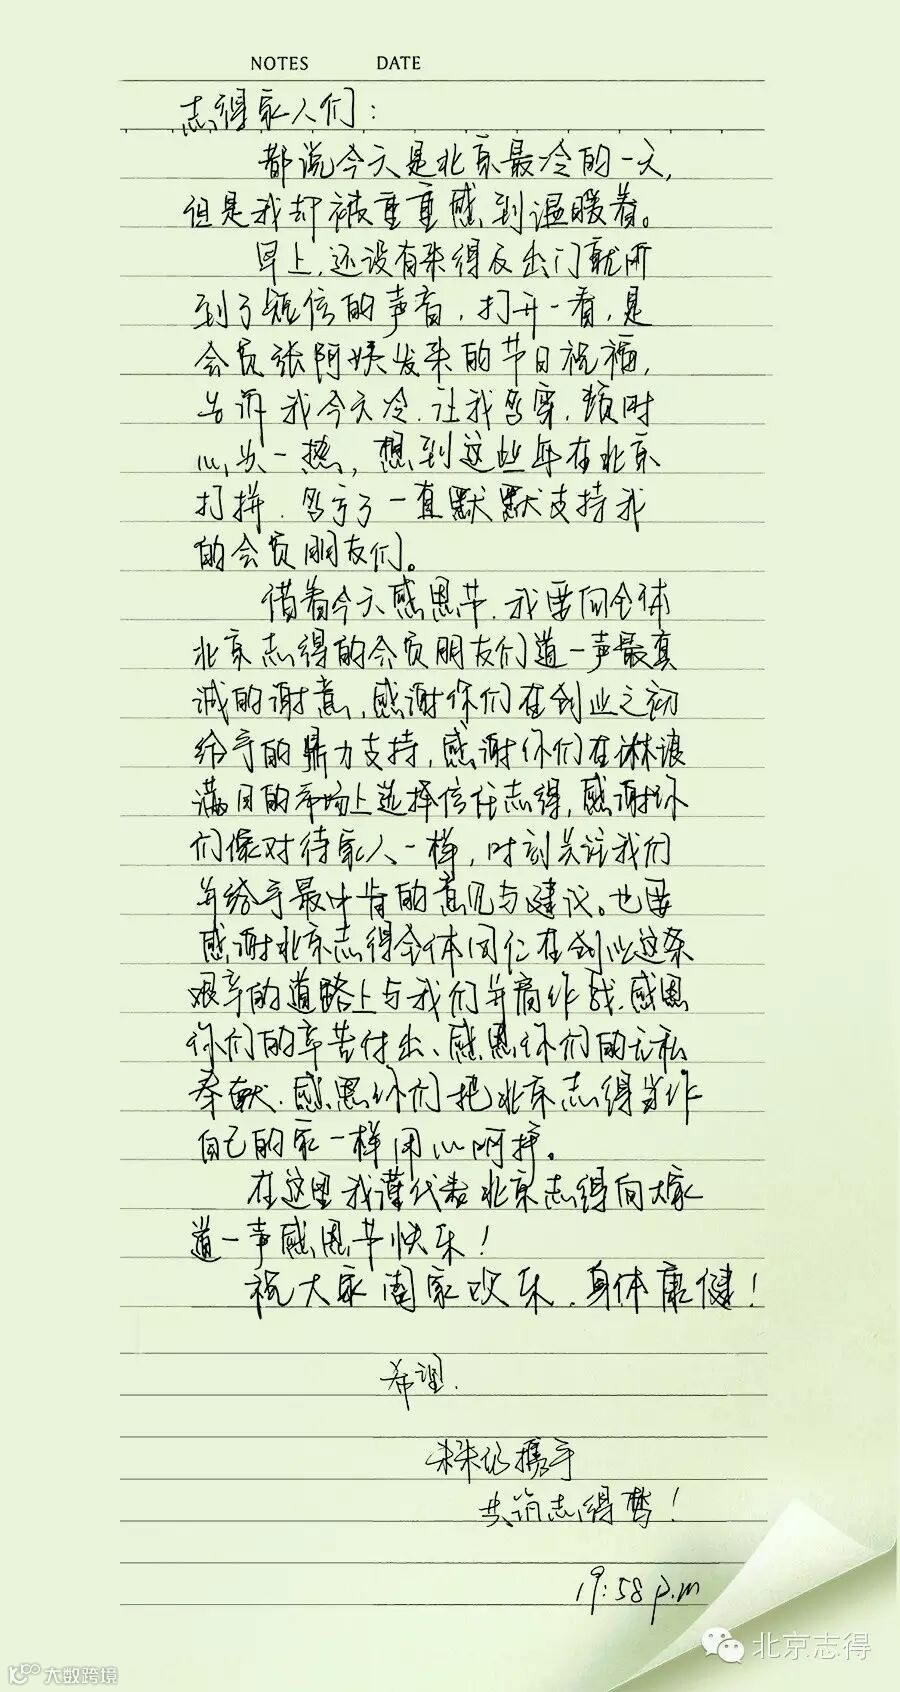 NOTES DATE
志得家人们：
都说今天是北京最冷的一天，
但是我却被重重感到温暖着。
早上，还没有来得及出门就听
到了短信的声音，打开一看，是
会员张阿姨发来的节日祝福，
告诉我今天冷，让我多穿，顿时
心头一热，想到这些年在北京
打拼，多亏了一直默默支持我
的会员朋友们。
借着今天感恩节，我要向全体
北京志得的会员朋友们道一声最真
诚的谢意，感谢你们在创业之初
给予的鼎力支持，感谢你们在琳琅
满目的市场上选择信任志得，感谢你
们像对待家人一样，时刻关注我们
并给予最中肯的意见与建议。也要
感谢北京志得全体同仁在创业这条
艰辛的道路上与我们并肩作战，感恩
你们的辛苦付出、感恩你们的无私
奉献，感恩你们把北京志得当作
自己的家一样用心呵护。
在这里我谨代表北京志得向大家
道一声感恩节快乐！
祝大家阖家欢乐，身体康健！
希望，
未来仍携手
共筑志得梦！
19:58 p.m
北京志得
大数跨境